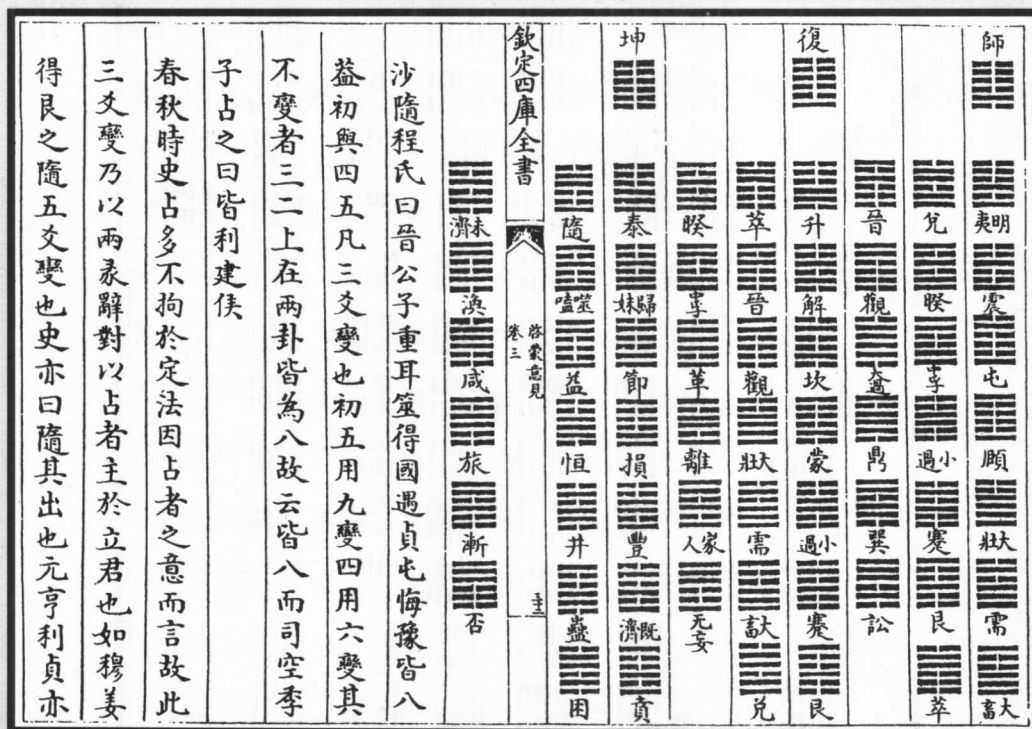 師 明夷 震 屯 頤 大壯 需 大畜
兌 睽 中孚 小過 蹇 艮 萃
晉 觀 大過 鼎 巽 訟
復 升 解 坎 蒙 小過 蹇 艮
萃 晉 觀 大壯 需 大畜 兌
睽 中孚 革 離 家人 无妄
坤 泰 歸妹 節 損 豐 既濟 賁
隨 噬嗑 益 恒 井 蠱 困
欽定四庫全書
啓蒙意見
卷三
未濟 渙 咸 旅 漸 否
沙隨程氏曰晉公子重耳筮得國遇貞屯悔豫皆八
葢初與四五凡三爻變也初五用九變四用六變其
不變者三二上在兩卦皆為八故云皆八而司空季
子占之曰皆利建侯
春秋時史占多不拘於定法因占者之意而言故此
三爻變乃以兩彖辭對以占者主於立君也如穆姜
得艮之隨五爻變也史亦曰隨其出也元亨利貞亦